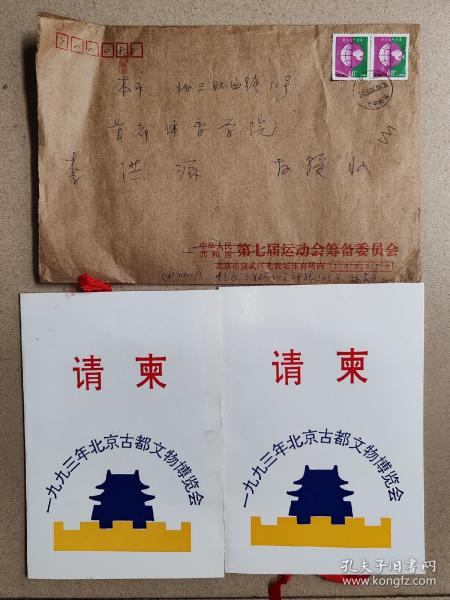 本市 北三环西路11号
首都体育学院
李洪滋 教授收
中华人民
共和国
第七届运动会筹备委员会
北京市宣武区先农坛体育场内
请柬
一九九三年北京古都文物博览会
请柬
一九九三年北京古都文物博览会
孔夫子旧书网
www.kongfz.com